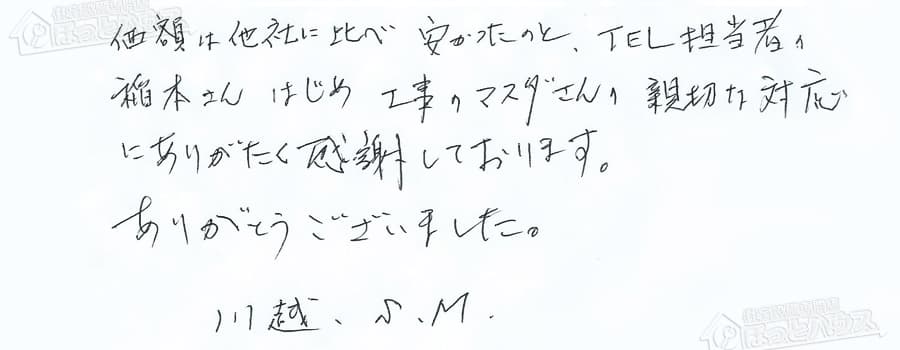 価額は他社に比べ 安かったのと、TEL担当者の
稲本さん はじめ 工事のマスダさんの 親切な対応
にありがたく感謝しております。
ありがとうございました。
川越、S.M.
ほっとハウス
ほっとハウス